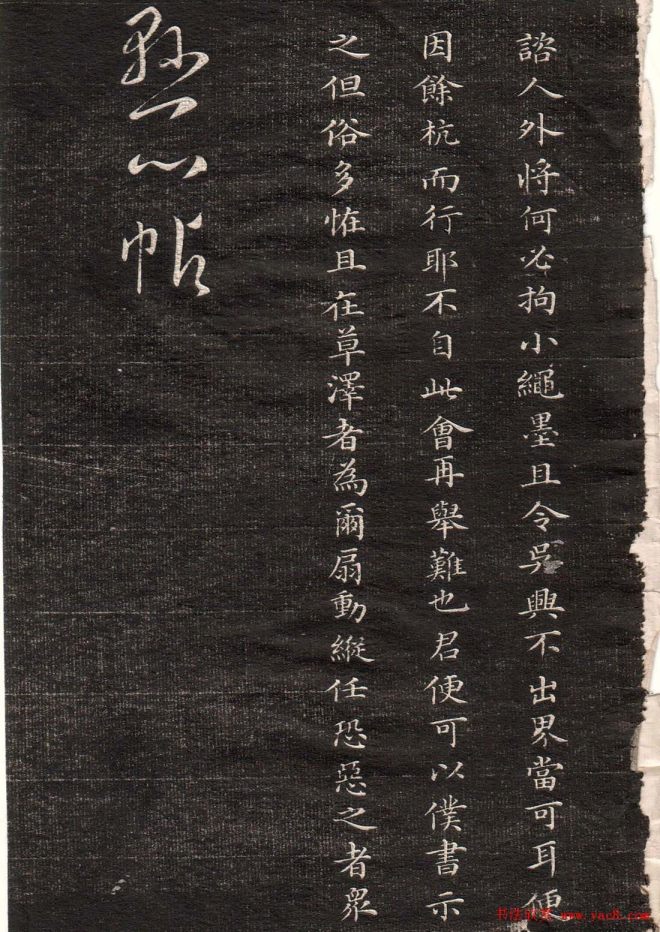 諮人外將何必拘小繩墨且令吳興不出界當可耳便
因餘杭而行耶不自此會再舉難也君便可以僕書示
之但俗多恠且在草澤者為爾扇動縱任恐惡之者眾
帖
www.yac8.com